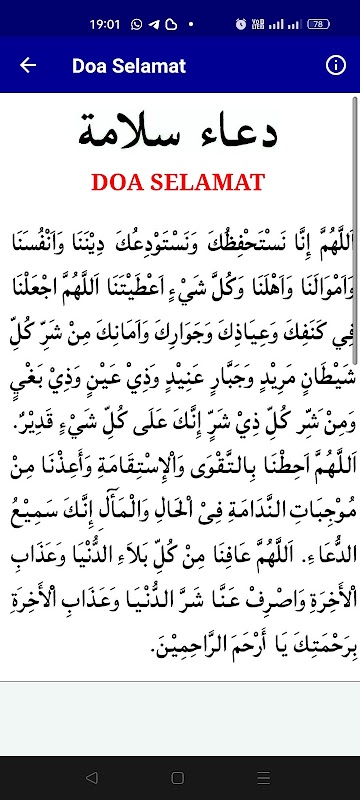 19:01
VoD LTE
78
Doa Selamat
دعاء سلامة
DOA SELAMAT
اَللَّهُمَّ إِنَّا نَسْتَحْفِظُكَ وَنَسْتَوْدِعُكَ دِيْنَنَا وَاَنْفُسَنَا
وَاَمْوَالَنَا وَاَهْلَنَا وَكُلَّ شَيْءٍ اَعْطَيْتَنَا اَللَّهُمَّ اجْعَلْنَا
فِي كَنَفِكَ وَعِيَاذِكَ وَجَوَارِكَ وَاَمَانِكَ مِنْ شَرِّ كُلِّ
شَيْطَانٍ مَرِيْدٍ وَجَبَّارٍ عَنِيْدٍ وَذِيْ عَيْنٍ وَذِيْ بَغْيٍ
وَمِنْ شَرِّ كُلِّ ذِيْ شَرٍّ إِنَّكَ عَلَى كُلِّ شَيْءٍ قَدِيْرٌ.
اَللَّهُمَّ اَحِطْنَا بِالتَّقْوَى وَاْلإِسْتِقَامَةِ وَأَعِذْنَا مِنْ
مُوْجِبَاتِ النَّدَامَةِ فِىْ الْحَالِ وَالْمَأَلِ إِنَّكَ سَمِيْعُ
الدُّعَاءِ. اَللَّهُمَّ عَافِنَا مِنْ كُلِّ بَلَاءِ الدُّنْيَا وَعَذَابِ
اْلأَخِرَةِ وَاصْرِفْ عَنَّا شَرَّ الدُّنْيَا وَعَذَابِ اْلأَخِرَةِ
بِرَحْمَتِكَ يَا أَرْحَمَ الرَّاحِمِيْنَ.